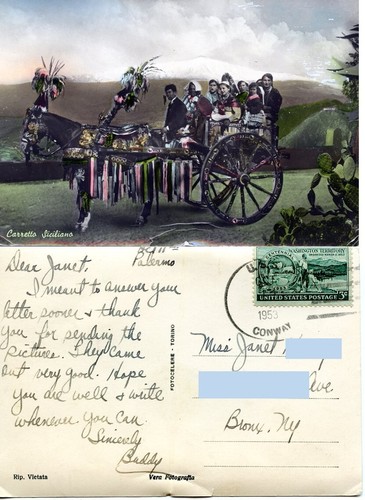 Carretto Siciliano
Palermo
Dear Janet,
I meant to answer your
letter sooner & thank
you for sending the
pictures. They came
out very good. Hope
you are well & write
whenever you can.
Sincerely
Buddy
FOTOCELERE - TORINO
WASHINGTON TERRITORY
UNITED STATES POSTAGE 3c
U.S.
1953
CONWAY
Miss Janet
Ave
Bronx, Ny
Rip. Vietata
Vera Fotografia